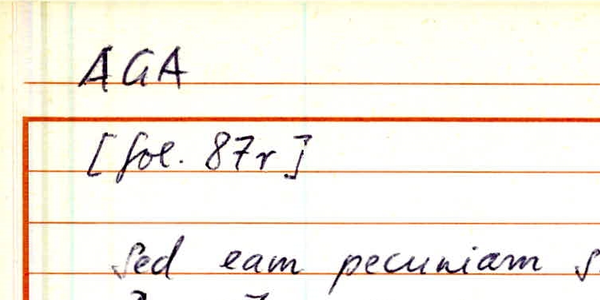 AGA
[fol. 87r]
sed eam pecuniam